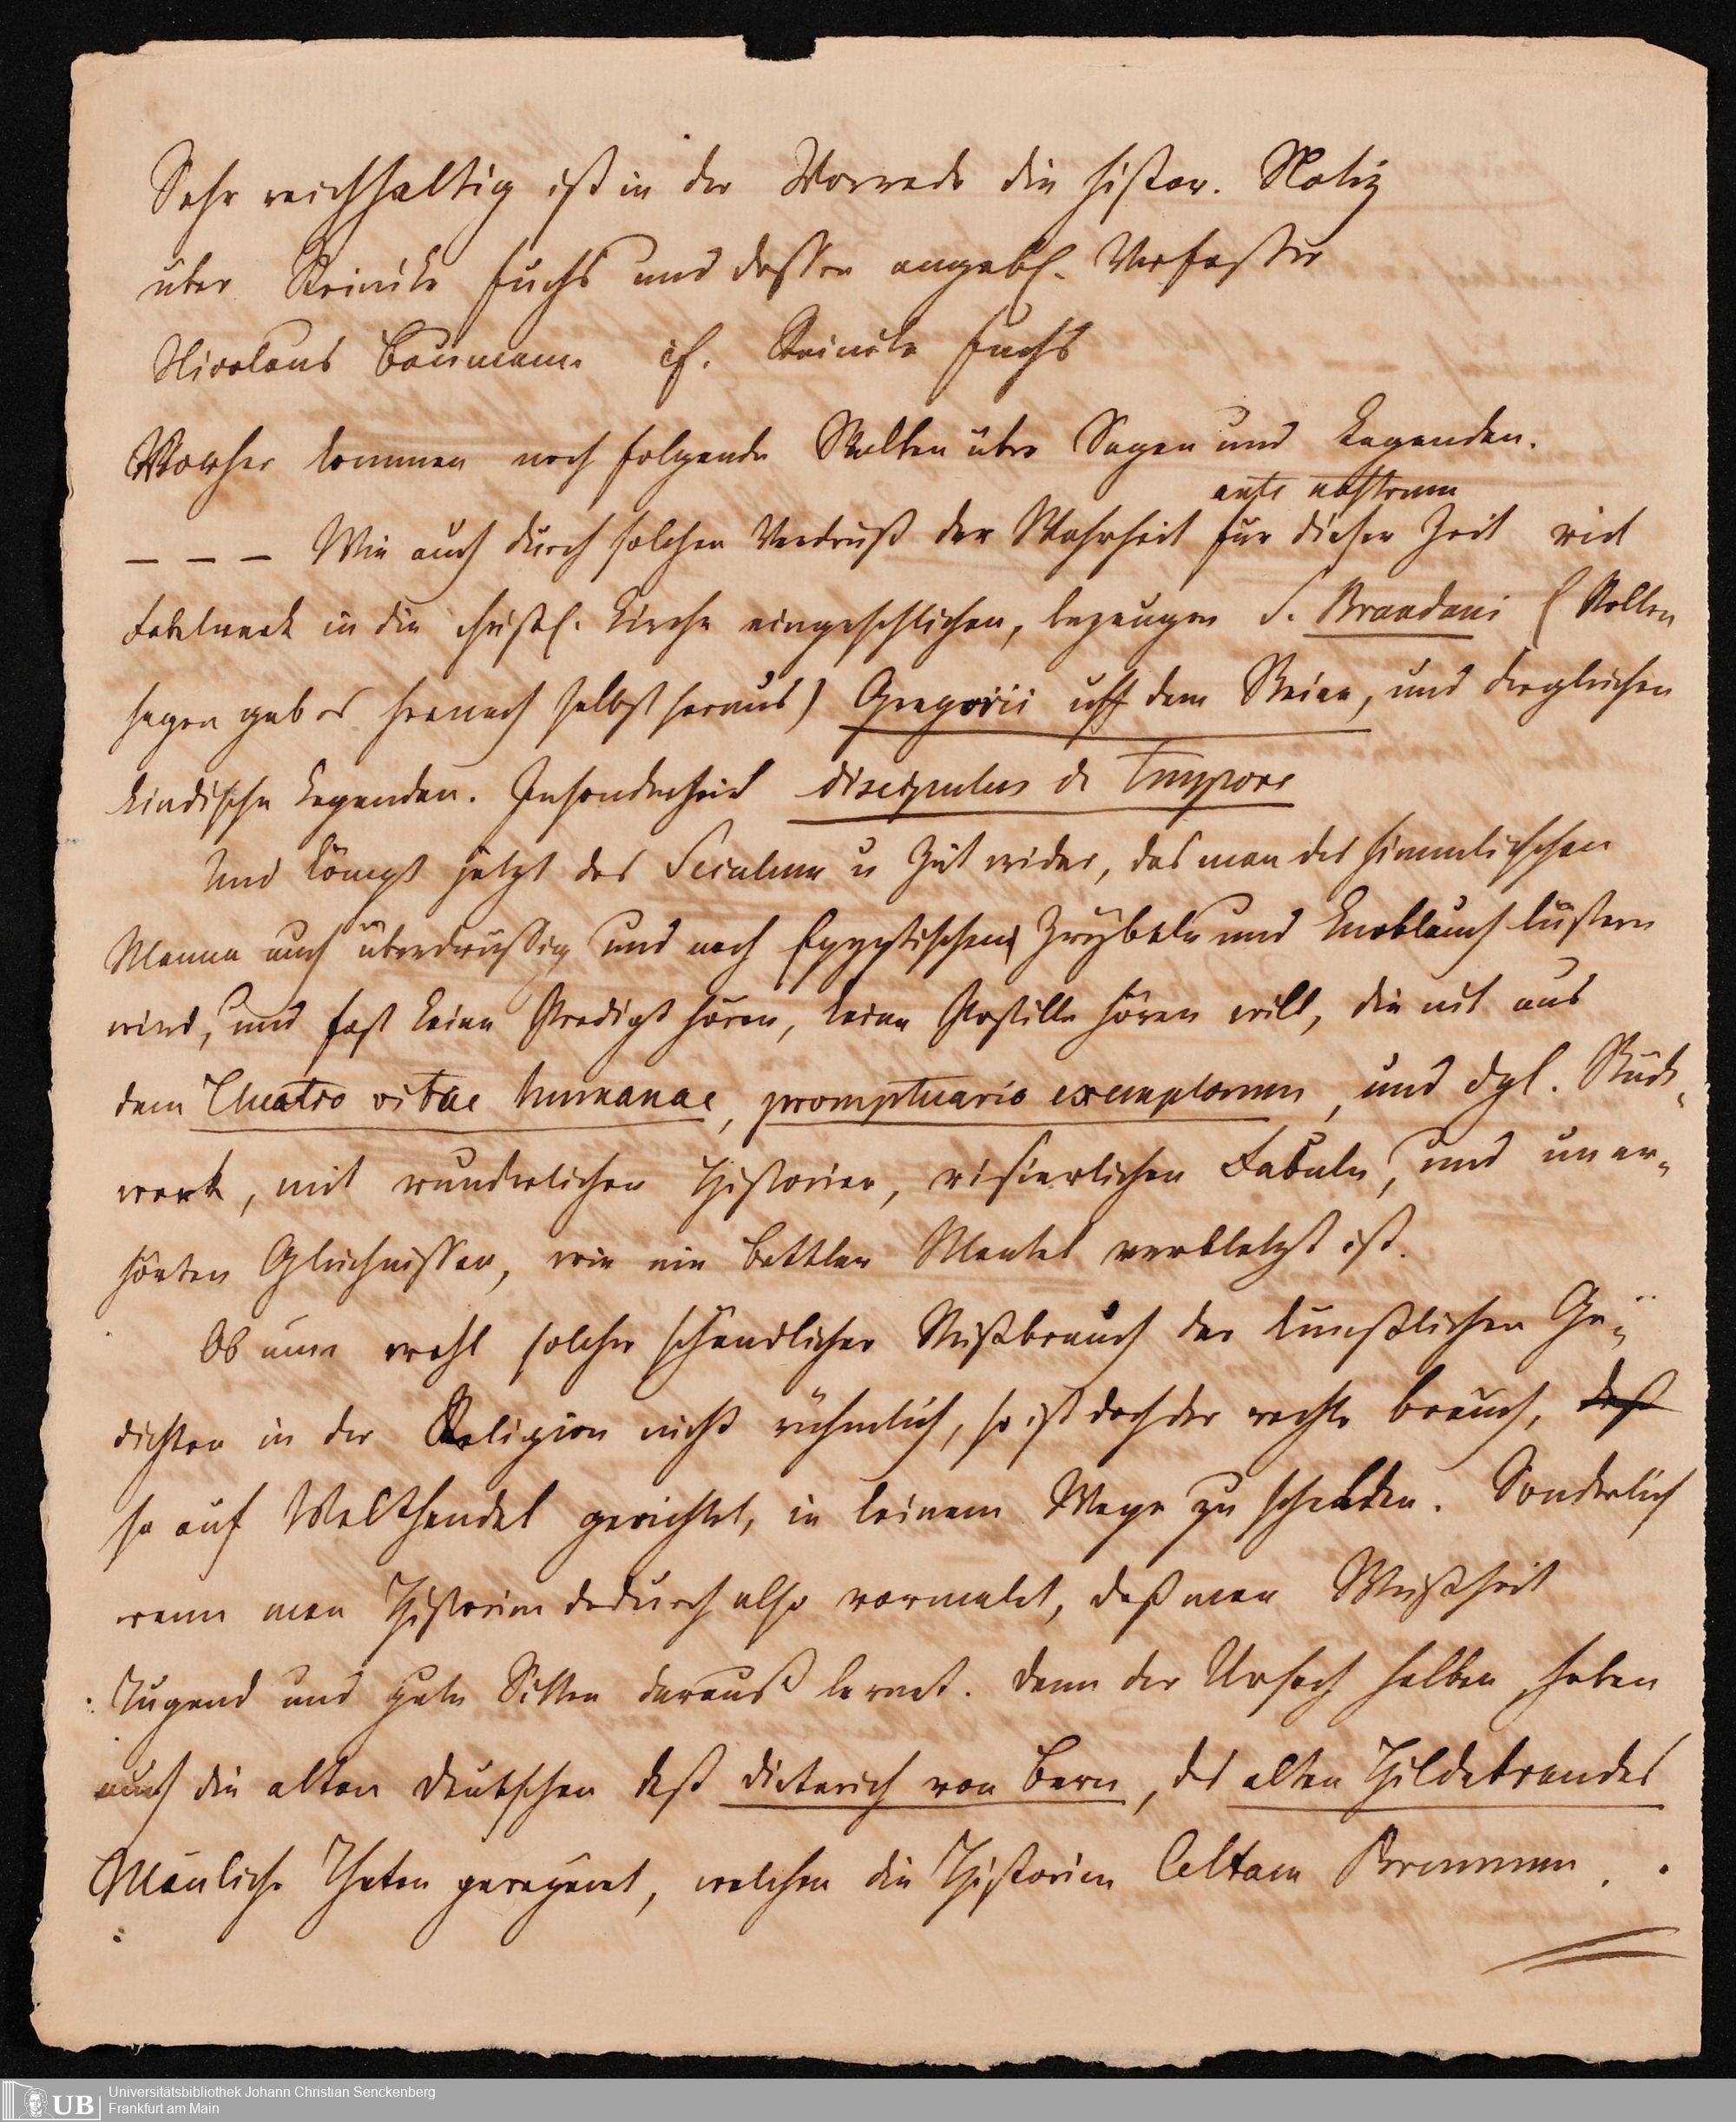 Sehr reichhaltig ist in der Vorrede die histor. Notiz
über Reinike Fuchs und dessen angebl. Verfasser
Nicolaus Baumann cf. Reinike Fuchs
Vorher kommen noch folgende Stellen über Sagen und Legenden.
ante nostrum
– – – Wie auch durch solchen Verdruß der Wahrheit für dieser Zeit viel
Fabelwerk in die christl. Kirche eingeschlichen, bezeugen S. Brandani (Rollen
hagen gab es hernach selbst heraus) Gregorii uff dem Steine, und dergleichen
kindische Legenden. Insonderheit discipulus de Tempore
Und kömpt jetzt das Seculum u Zeit wider, das man des himmlischen
Manna auch überdrüssig und nach Egyptischen Zwybeln und Knoblauch lüstern
wird, und fast keine Predigt hören, keine Postille hören will, die nit aus
dem Theatro vitae humanae, promptuario exemplorum, und dgl. Stück-
werk, mit wunderlichen Historien, visierlichen Fabuln, und uner-
hörten Gleichnissen, wie ein Bettler Mantel verbletzt ist.
Ob nun wohl solcher schändlicher Mißbrauch der kunstlichen Ge-
dichten in der Religion nicht rühmlich, so ist doch der rechte brauch, daß
so auf Welthandel gerichtet, in keinem Wege zu schelden. Sonderlich
wenn man Historien dadurch also vormalet, daß man Weißheit
Tugend und gute Sitten darauß lernet. Denn der Ursach halben haben
auch die alten Deutschen deß Dieterich von Bern, des alten Hildebrandes
Mänliche Thaten gereymet, welchen die Historien Celtam Brennum.
Universitätsbibliothek Johann Christian Senckenberg
Frankfurt am Main
UB